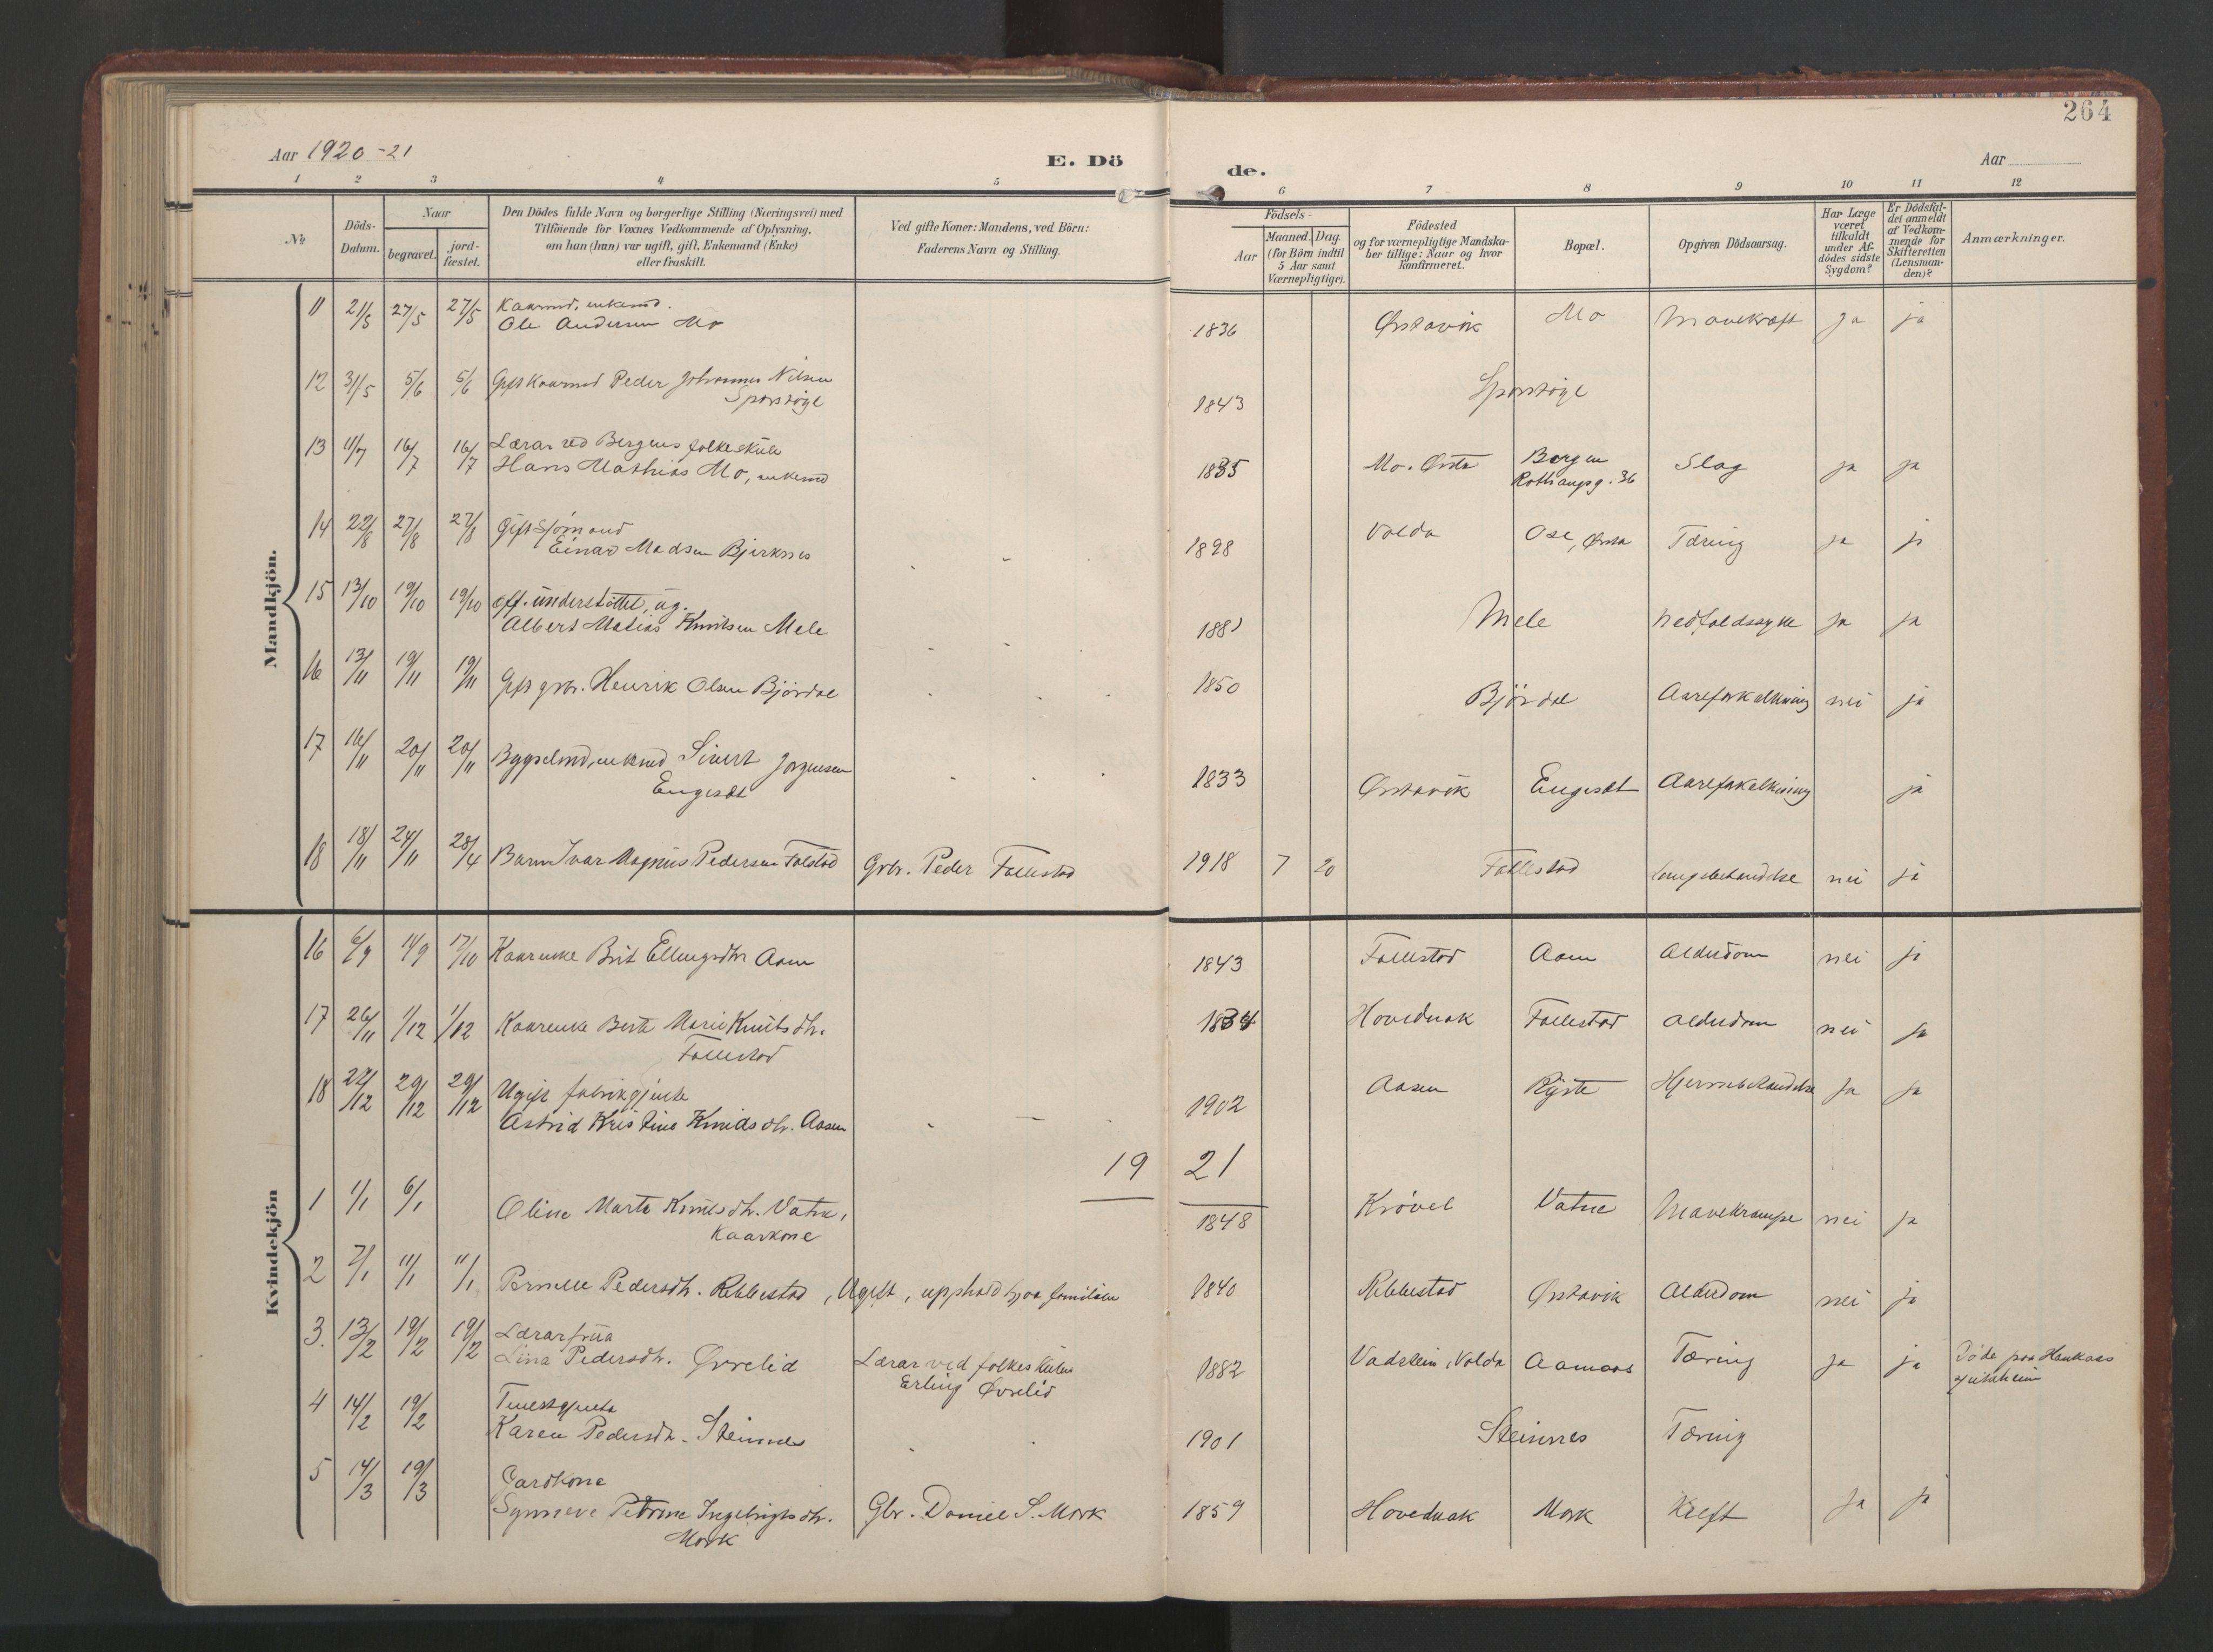 264
Aar 1920-21
E. Dö
de.
Aar
1 2 3 4 5 6 7 8 9 10 11 12
№
Döds-
Datum.
Naar
begravet.
jord-
fæstet.
Den Dödes fulde Navn og borgerlige Stilling (Næringsvei) med
Tilföiende for Voxnes Vedkommende af Oplysning,
om han (hun) var ugift, gift, Enkemand (Enke)
eller fraskilt.
Ved gifte Koner: Mandens, ved Börn:
Faderens Navn og Stilling.
Födsels-
Aar
Maaned. Dag.
(for Börn indtil
5 Aar samt
Værnepligtige).
Födested
og for værnepligtige Mandska-
ber tillige: Naar og hvor
konfirmeret.
Bopæl.
Opgiven Dödsaarsag.
Har Læge
været
tilkaldt
under Af-
dödes sidste
Sygdom?
Er Dödsfal-
det anmeldt
af Vedkom-
mende for
Skifteretten
(Lensman-
den)?
Anmærkninger.
Mandkjön.
11 21/5 27/5 27/5 Kaarmd, enkemd.
Ole Andersen Mo 1836 Ørstavik Mo Mavekræft ja ja
12 31/5 5/6 5/6 Gift Kaarmd Peder Johannes Nilsen
Sporstöyl 1843 Sporstöyl
13 11/7 16/7 16/7 Lærar ved Bergens folkeskule
Hans Mathias Mo, enkemd 1835 Mo. Ørsta Bergen
36 Slag ja ja
14 22/8 27/8 27/8 Gift sjömand
Einar Madsen Bjerknes 1898 Volda Ose, Ørsta Tæring ja ja
15 13/10 19/10 19/10 off. understöttet, ug.
Albert Matias Knutsen Mele 1881 Mele nedfaldssyke ja ja
16 13/11 19/11 19/11 Gift grbr. Henrik Olsen Björdal 1850 Björdal Aareforkalkning nei ja
17 16/11 20/11 20/11 Bygselmd, enkemd Sivert Jørgensen
Engeset 1833 Ørstavik Engeset Aareforkalkning ja
18 18/11 24/11 28/4 Barn Ivar Magnus Pedersen Folestad Grbr. Peder Follestad 1918 7 20 Follestad Lungebetendelse nei ja
Kvindekjön
16 6/9 14/9 17/10 Kaarenke Brit Ellingsdtr Aam 1843 Follestad Aam Alderdom nei ja
17 26/11 1/12 1/12 Kaarenke Berte Marie Knutsdtr.
Follestad 1834 Hovednak Follestad Alderdom nei ja
18 22/12 29/12 29/12 Ugift fabrikgjente
Astrid Kristine Knudsdtr. Aasen 1902 Aasen Ryste Hjernebetændelse ja ja
19 21
1 1/1 6/1 Oline Marta Knutsdtr. Vatne,
Kaarkone 1848 Krövel Vatne Mavekrampe nei ja
2 7/1 11/1 11/1 Pernille Pedersdtr. Rebbestad, Ugift, upphald hjaa familien 1840 Rebbestad Ørstavik Alderdom nei ja
3. 13/2 19/2 19/2 Lærarfrua
Lina Pedersdtr. Øvrelid Lærar ved folkeskulen
Erling Øvrelid 1882 Vadstein, Volda Aamaas Tæring ja ja Döde paa Haukaas
4 14/2 19/2 Tenestgjenta
Karen Pedersdtr. Steinnes 1901 Steinnes Tæring
5 14/3 19/3 Gardkona
Synneve Petrine Ingebrigtsdtr.
Mork Gbr. Daniel S. Mork 1859 Hovednak Mork Kreft ja ja